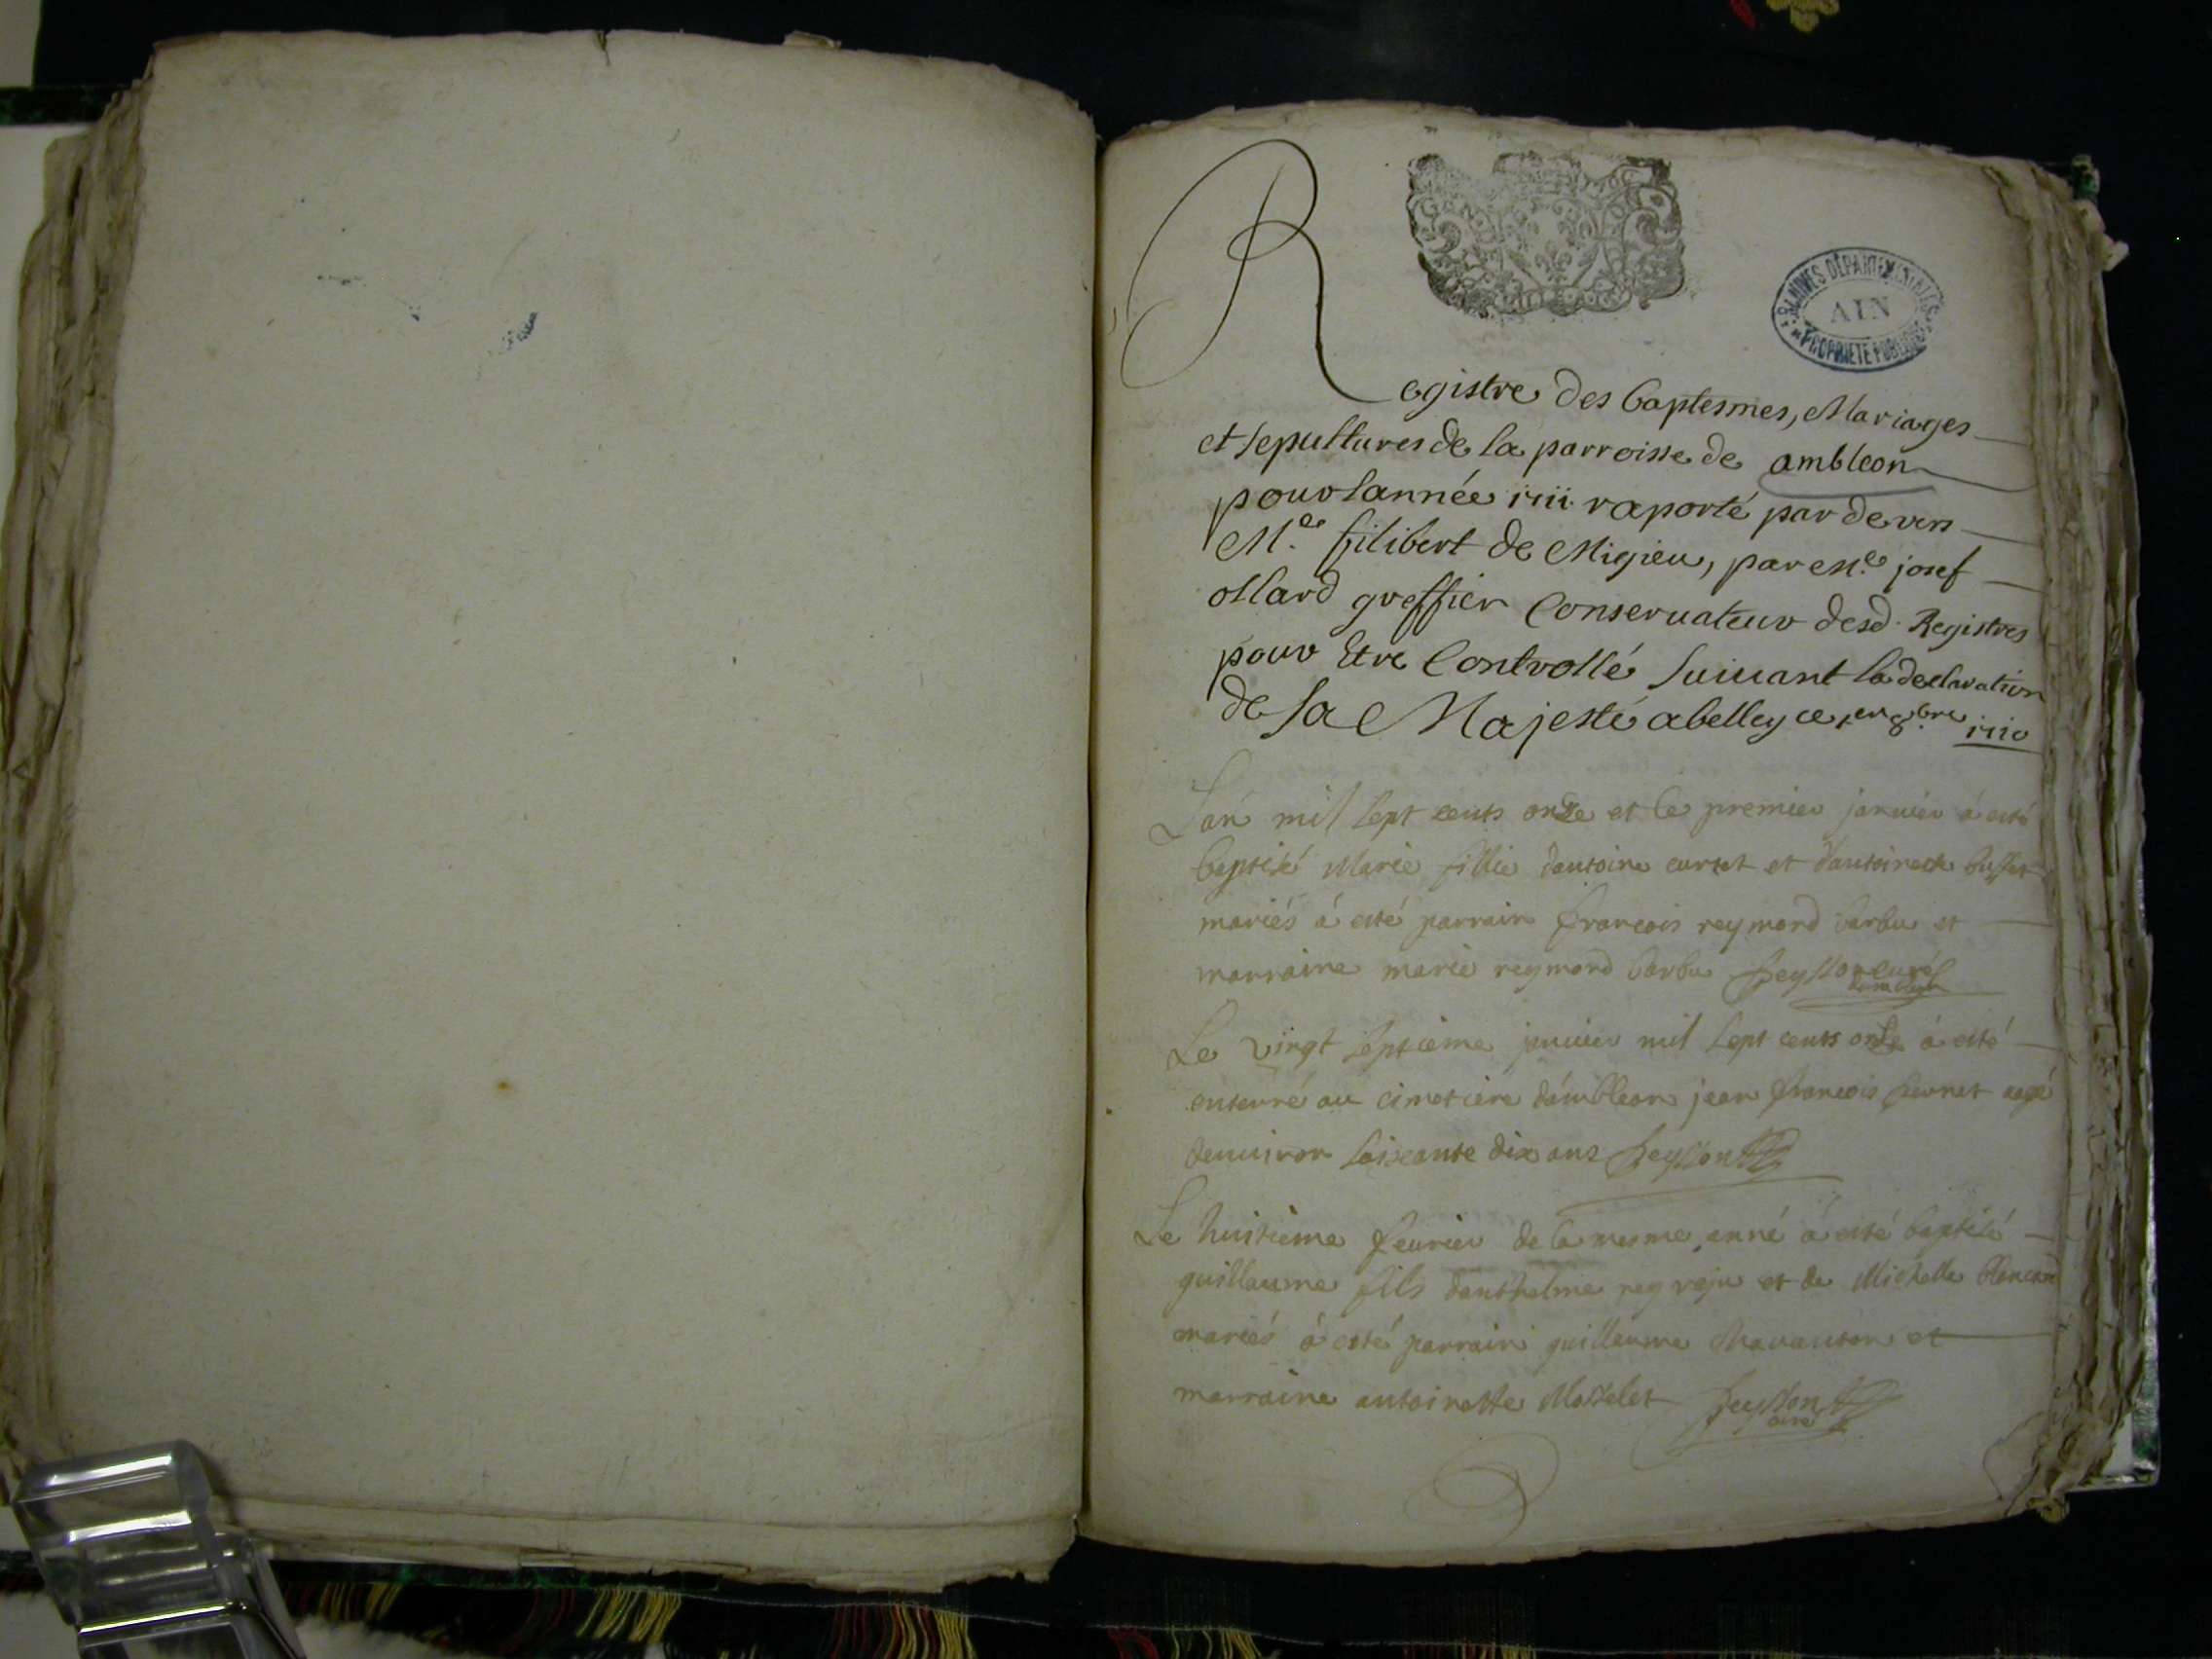 GEN
ARCHIVES DÉPARTEMENTALES
AIN
PROPRIETE PUBLIQUE
Registre des baptesmes, Mariages
et sepultures de la parroisse de ambleon
pour lannée 1711 raporté par devers
Me filibert de Migieu, par Me josef
ollard greffier Conservateur desd. Registres
pour Etre Controllé suivant la declaration
de sa Majesté a belley ce 1er 8bre 1710
Lan mil sept cents onze et le premier janvier à esté
baptisé Marie fillie dantoine curtet et dantoinette
mariés à esté parrain francois reymond barbu et
marraine marie reymond barbu feysson curé
Le vingt septieme janvier mil sept cents onze à esté
enterré au cimetiere dámbleon jean francois aagé
denuiron soixante dix ans feysson
Le huitieme feurier de la mesme anné à esté baptisé
guillaume fils danthelme rey et de Michelle
mariés à esté parrain guillaume et
marraine antoinette feysson curé